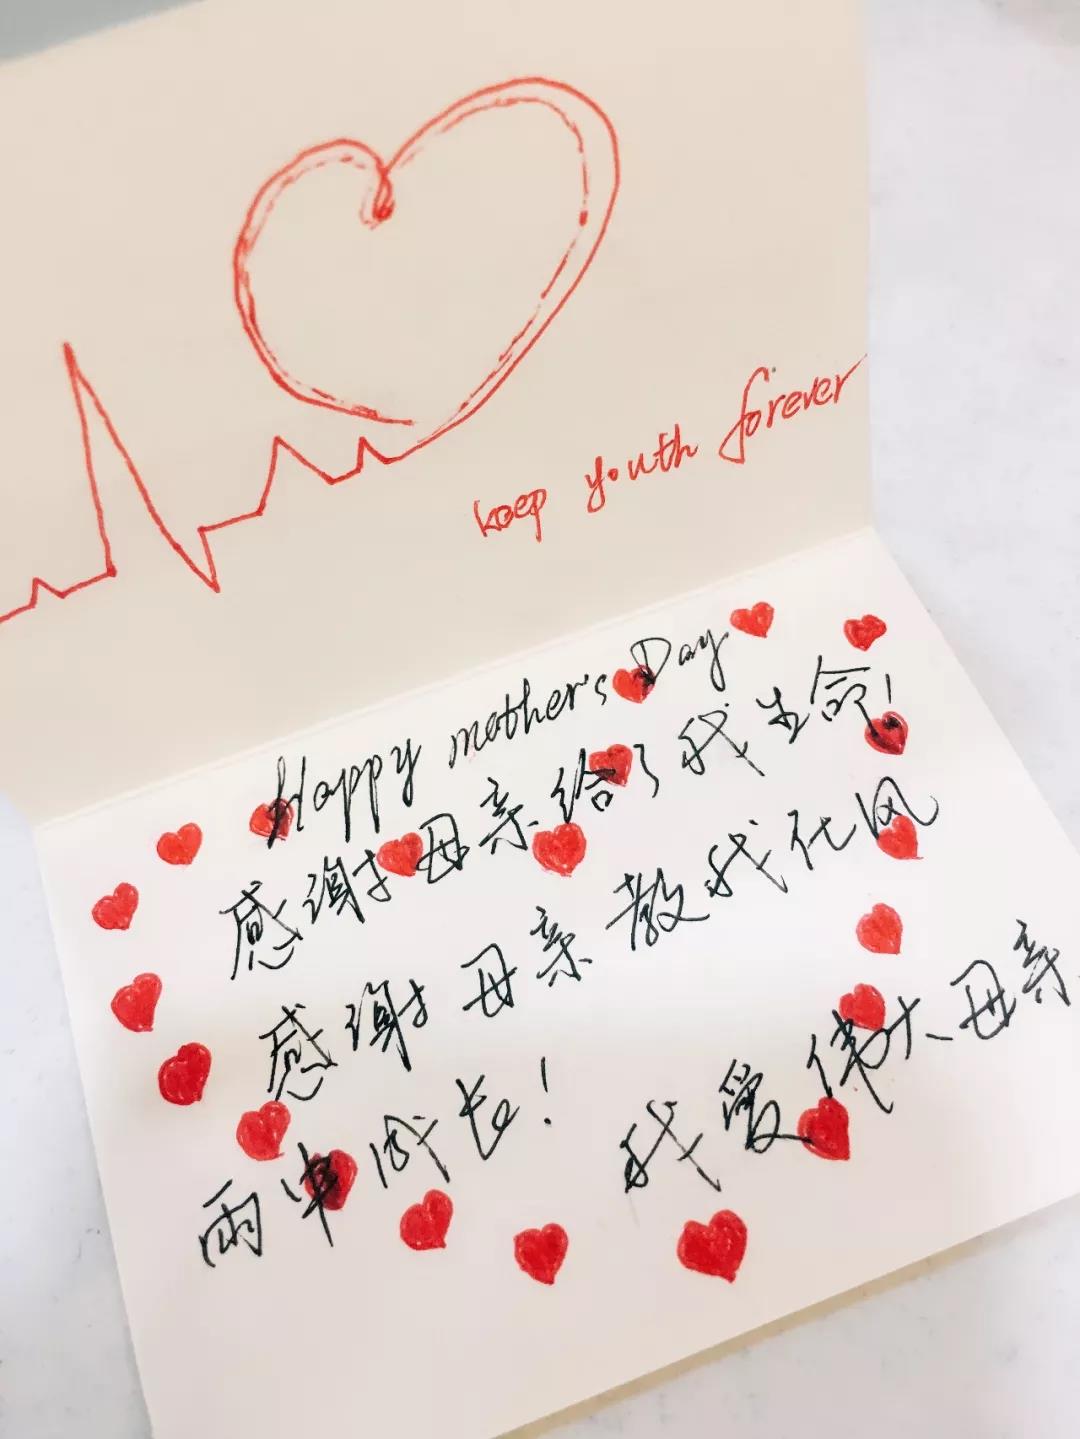 keep youth forever
Happy mother's Day
感谢母亲给了我生命!
感谢母亲教我化风
雨中成长! 我爱伟大母亲.